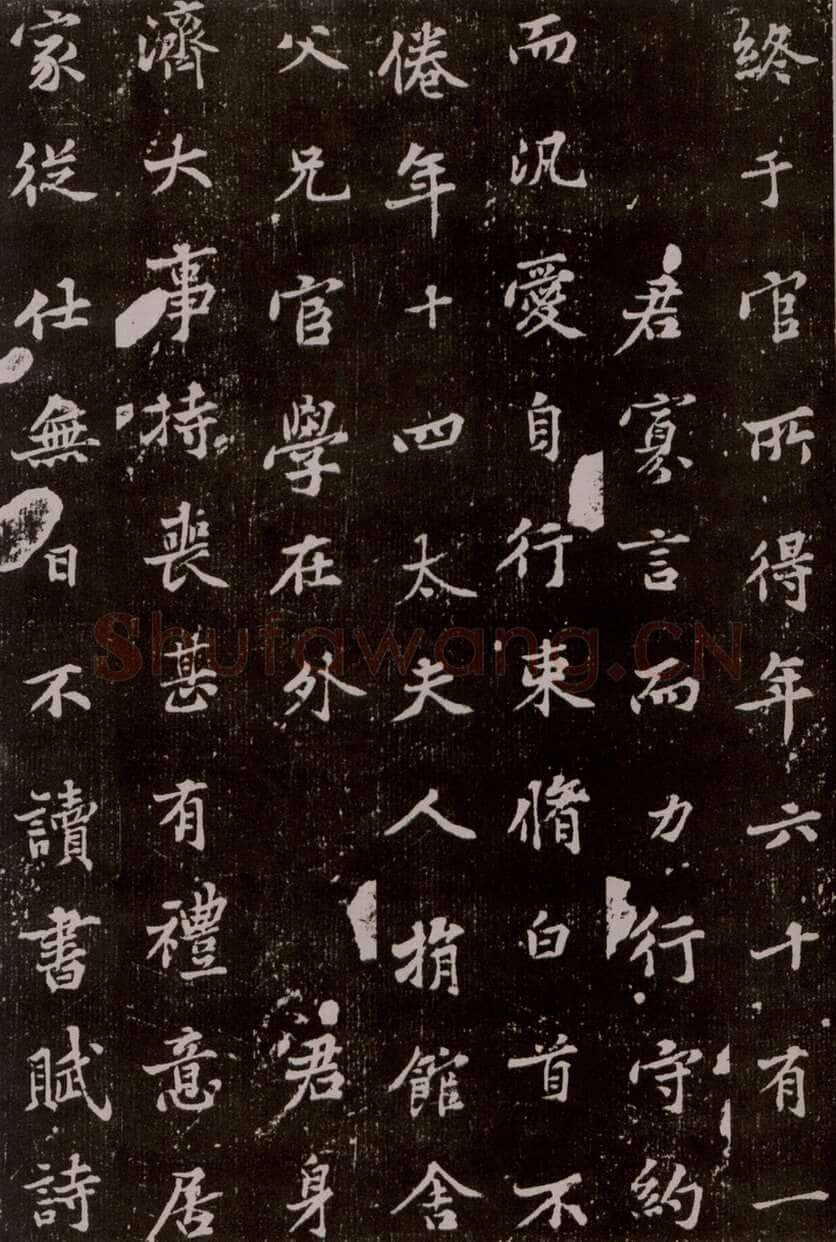 終于官所得年六十有一
君寡言而力行守約
而汎愛自行束脩白首不
倦年十四太夫人捐館舍
父兄官學在外 君身
濟大事持喪甚有禮意居
家從仕無日不讀書賦詩
Shufawang.CN